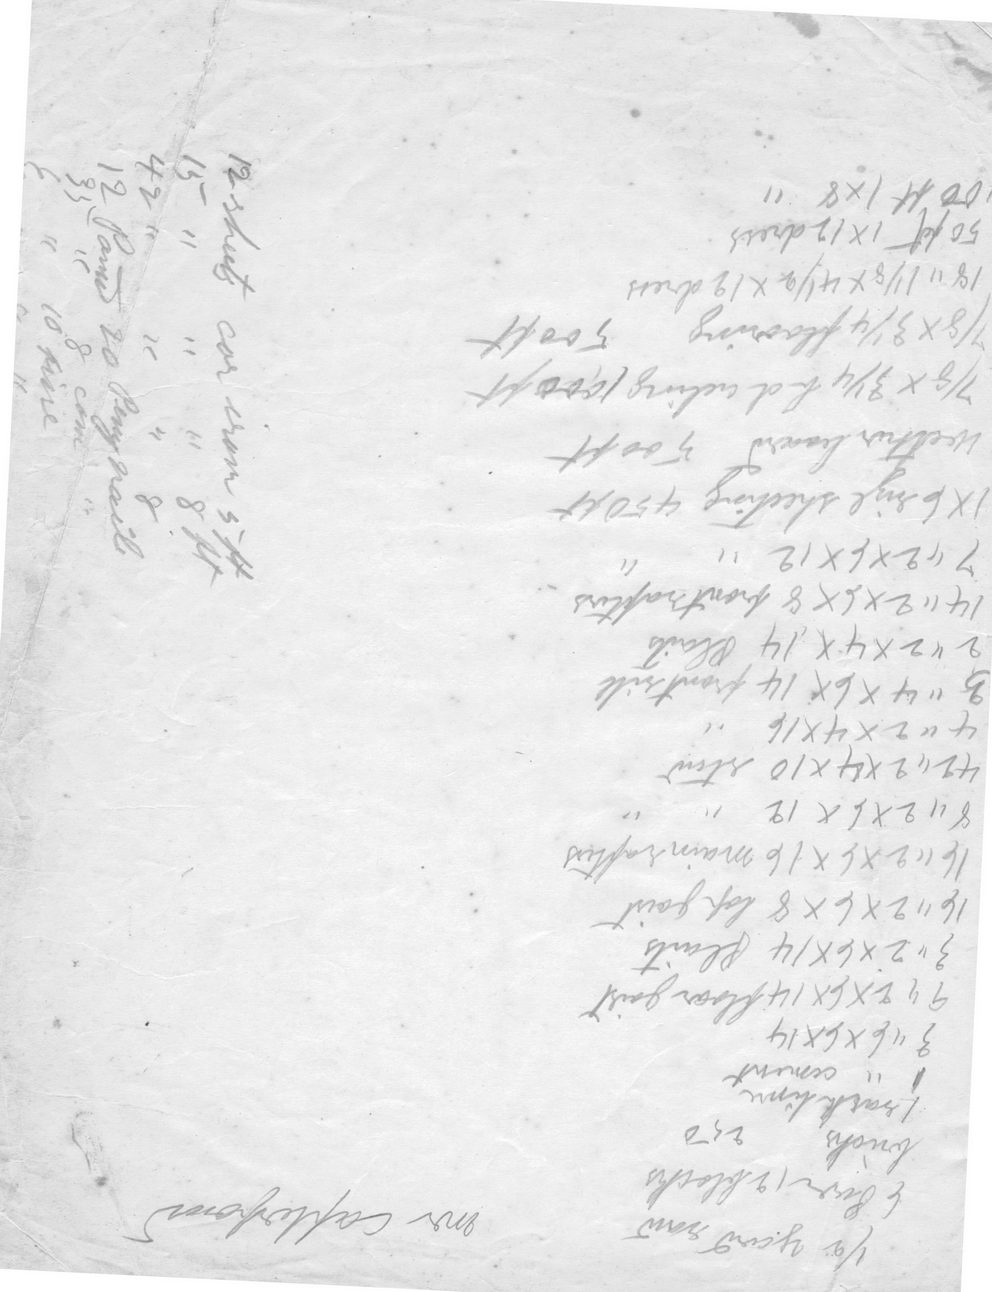 mr Capterfont
1/2 yard sand
6 Pier, 12 blocks
bricks 250
1 sack lime
1 " cement
3 " 6 x 6 x 14
9 " 2 x 6 x 14 floor goist
3 " 2 x 6 x 14 plaits
16 " 2 x 6 x 8 top goist
16 " 2 x 6 x 16 main rafters
8 " 2 x 6 x 12 " "
42 " 2 x 4 x 10 stud
4 " 2 x 4 x 16 "
3 " 4 x 6 x 14 front sill
2 " 2 x 4 x 14 Plaits
14 " 2 x 6 x 8 front rafters
7 " 2 x 6 x 12 " "
1 x 6 syl sheeting 450 ft
Wetther board 500 ft
7/8 x 3 1/4 bd cieling 1000 ft
7/8 x 3 1/4 flooring 500 ft
18 " 1 1/8 x 4 1/2 x 12 dress
50 ft 1 x 12 dress
100 ft 1 x 8 "
12 sheets cor iron 5 ft
15 " " " 8 ft
42 " " " 8
12 Pound 20 Peny nails
35 " 8 com "
6 " 10 fine "